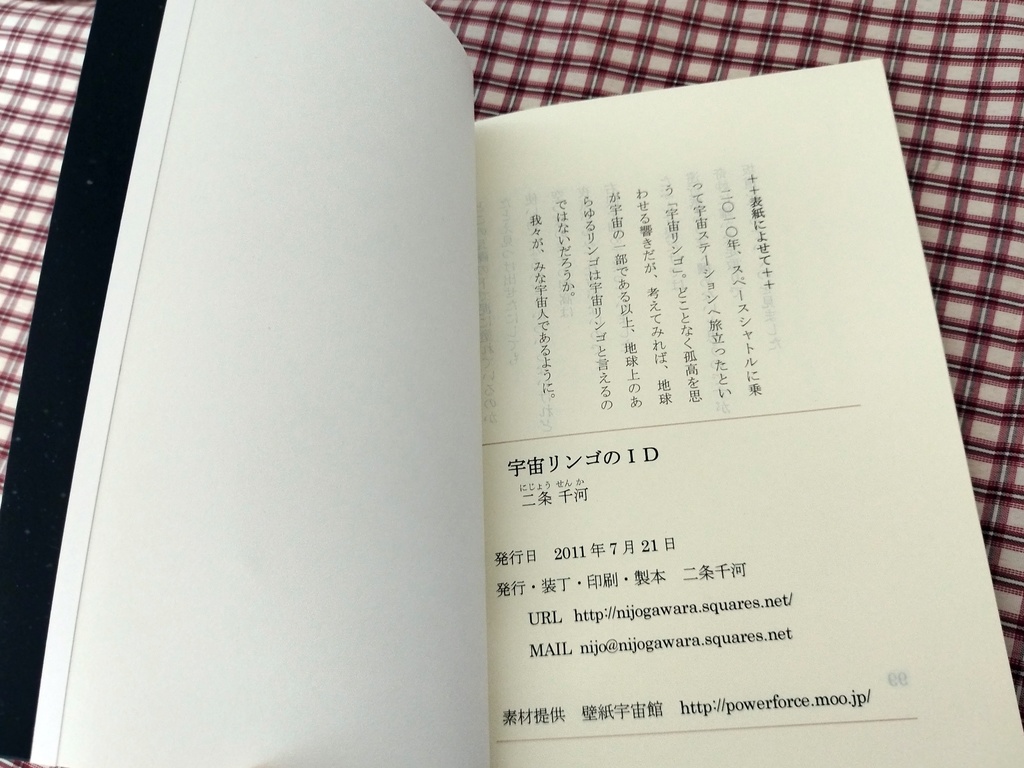 ++表紙によせて++
二〇一〇年、スペースシャトルに乗
って宇宙ステーションへ旅立ったとい
う「宇宙リンゴ」。どことなく孤高を思
わせる響きだが、考えてみれば、地球
が宇宙の一部である以上、地球上のあ
らゆるリンゴは宇宙リンゴと言えるの
ではないだろうか。
我々が、みな宇宙人であるように。
宇宙リンゴのＩＤ
にじょう せん か
二条 千河
発行日 2011年7月21日
発行・装丁・印刷・製本 二条千河
URL http://nijogawara.squares.net/
MAIL nijo@nijogawara.squares.net
素材提供 壁紙宇宙館 http://powerforce.moo.jp/